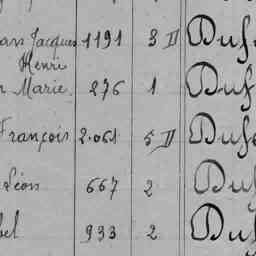 Jacques 1191 3 II Duf
Henri
Marie. 276 1 Duf
François 2.061 5 II Duf
Léon 667 2 Du
933 2 Du